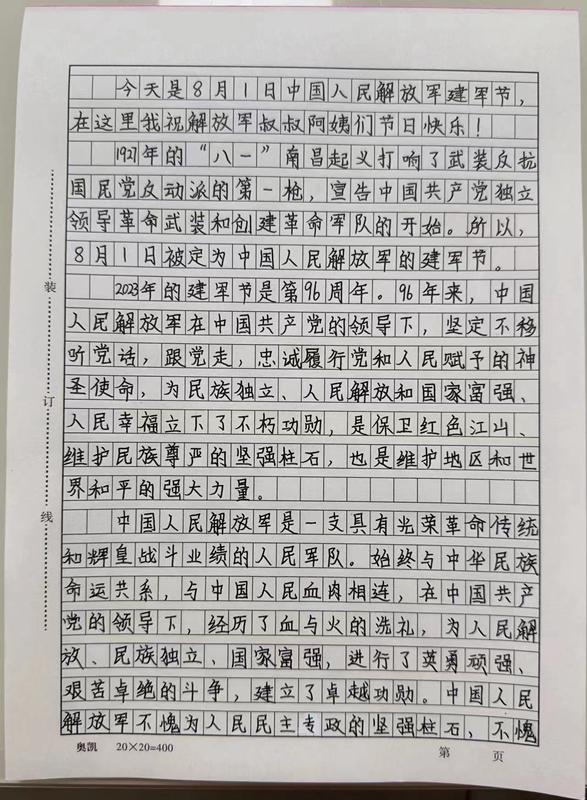 今天是8月1日中国人民解放军建军节，
在这里我祝解放军叔叔阿姨们节日快乐！
1927年的“八一”南昌起义打响了武装反抗
国民党反动派的第一枪，宣告中国共产党独立
领导革命武装和创建革命军队的开始。所以，
8月1日被定为中国人民解放军的建军节。
2023年的建军节是第96周年。96年来，中国
人民解放军在中国共产党的领导下，坚定不移
听党话，跟党走，忠诚履行党和人民赋予的神
圣使命，为民族独立、人民解放和国家富强、
人民幸福立下了不朽功勋，是保卫红色江山、
维护民族尊严的坚强柱石，也是维护地区和世
界和平的强大力量。
中国人民解放军是一支具有光荣革命传统
和辉皇战斗业绩的人民军队。始终与中华民族
命运共系，与中国人民血肉相连，在中国共产
党的领导下，经历了血与火的洗礼，为人民解
放、民族独立、国家富强，进行了英勇顽强、
艰苦卓绝的斗争，建立了卓越功勋。中国人民
解放军不愧为人民民主专政的坚强柱石，不愧
装
订
线
奥凯 20×20=400 第 页